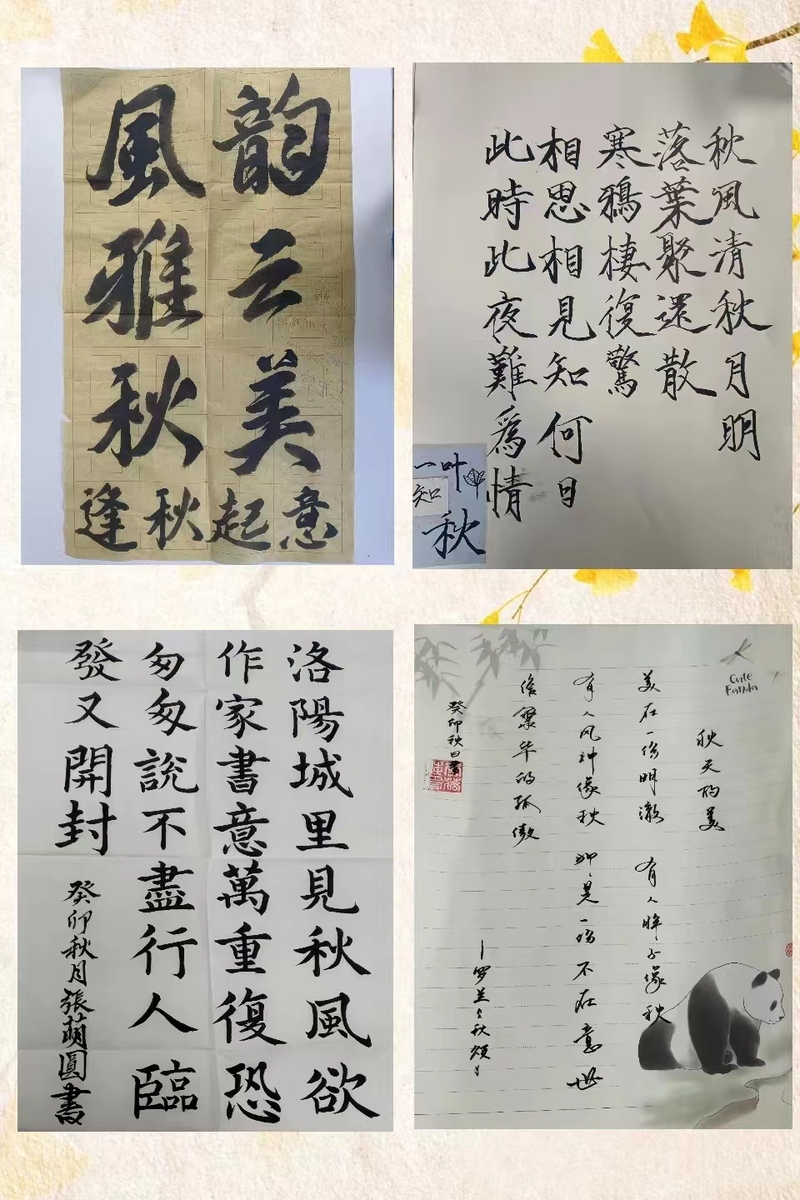 韵云美
風雅秋
逢秋起意
秋風清秋月明
落葉聚還散
寒鴉棲復驚
相思相見知何日
此時此夜難爲情
一叶
知
秋
洛陽城里見秋風欲
作家書意萬重復恐
匆匆說不盡行人臨
發又開封
癸卯秋月張萌圓書
Cute
Panda
秋天的美
美在一份明澈 有人眸子像秋
有人风神像秋 是一份不在意世
俗繁华的孤傲
—罗兰《秋颂》
癸卯秋日書